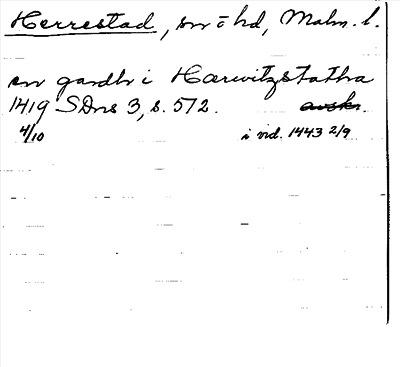 Herrestad, sn o hd, Malm. l.
en gardh i Hærwitzstatha
1419 SDns 3, s. 572. avskr.
4/10 i vid. 1443 2/9